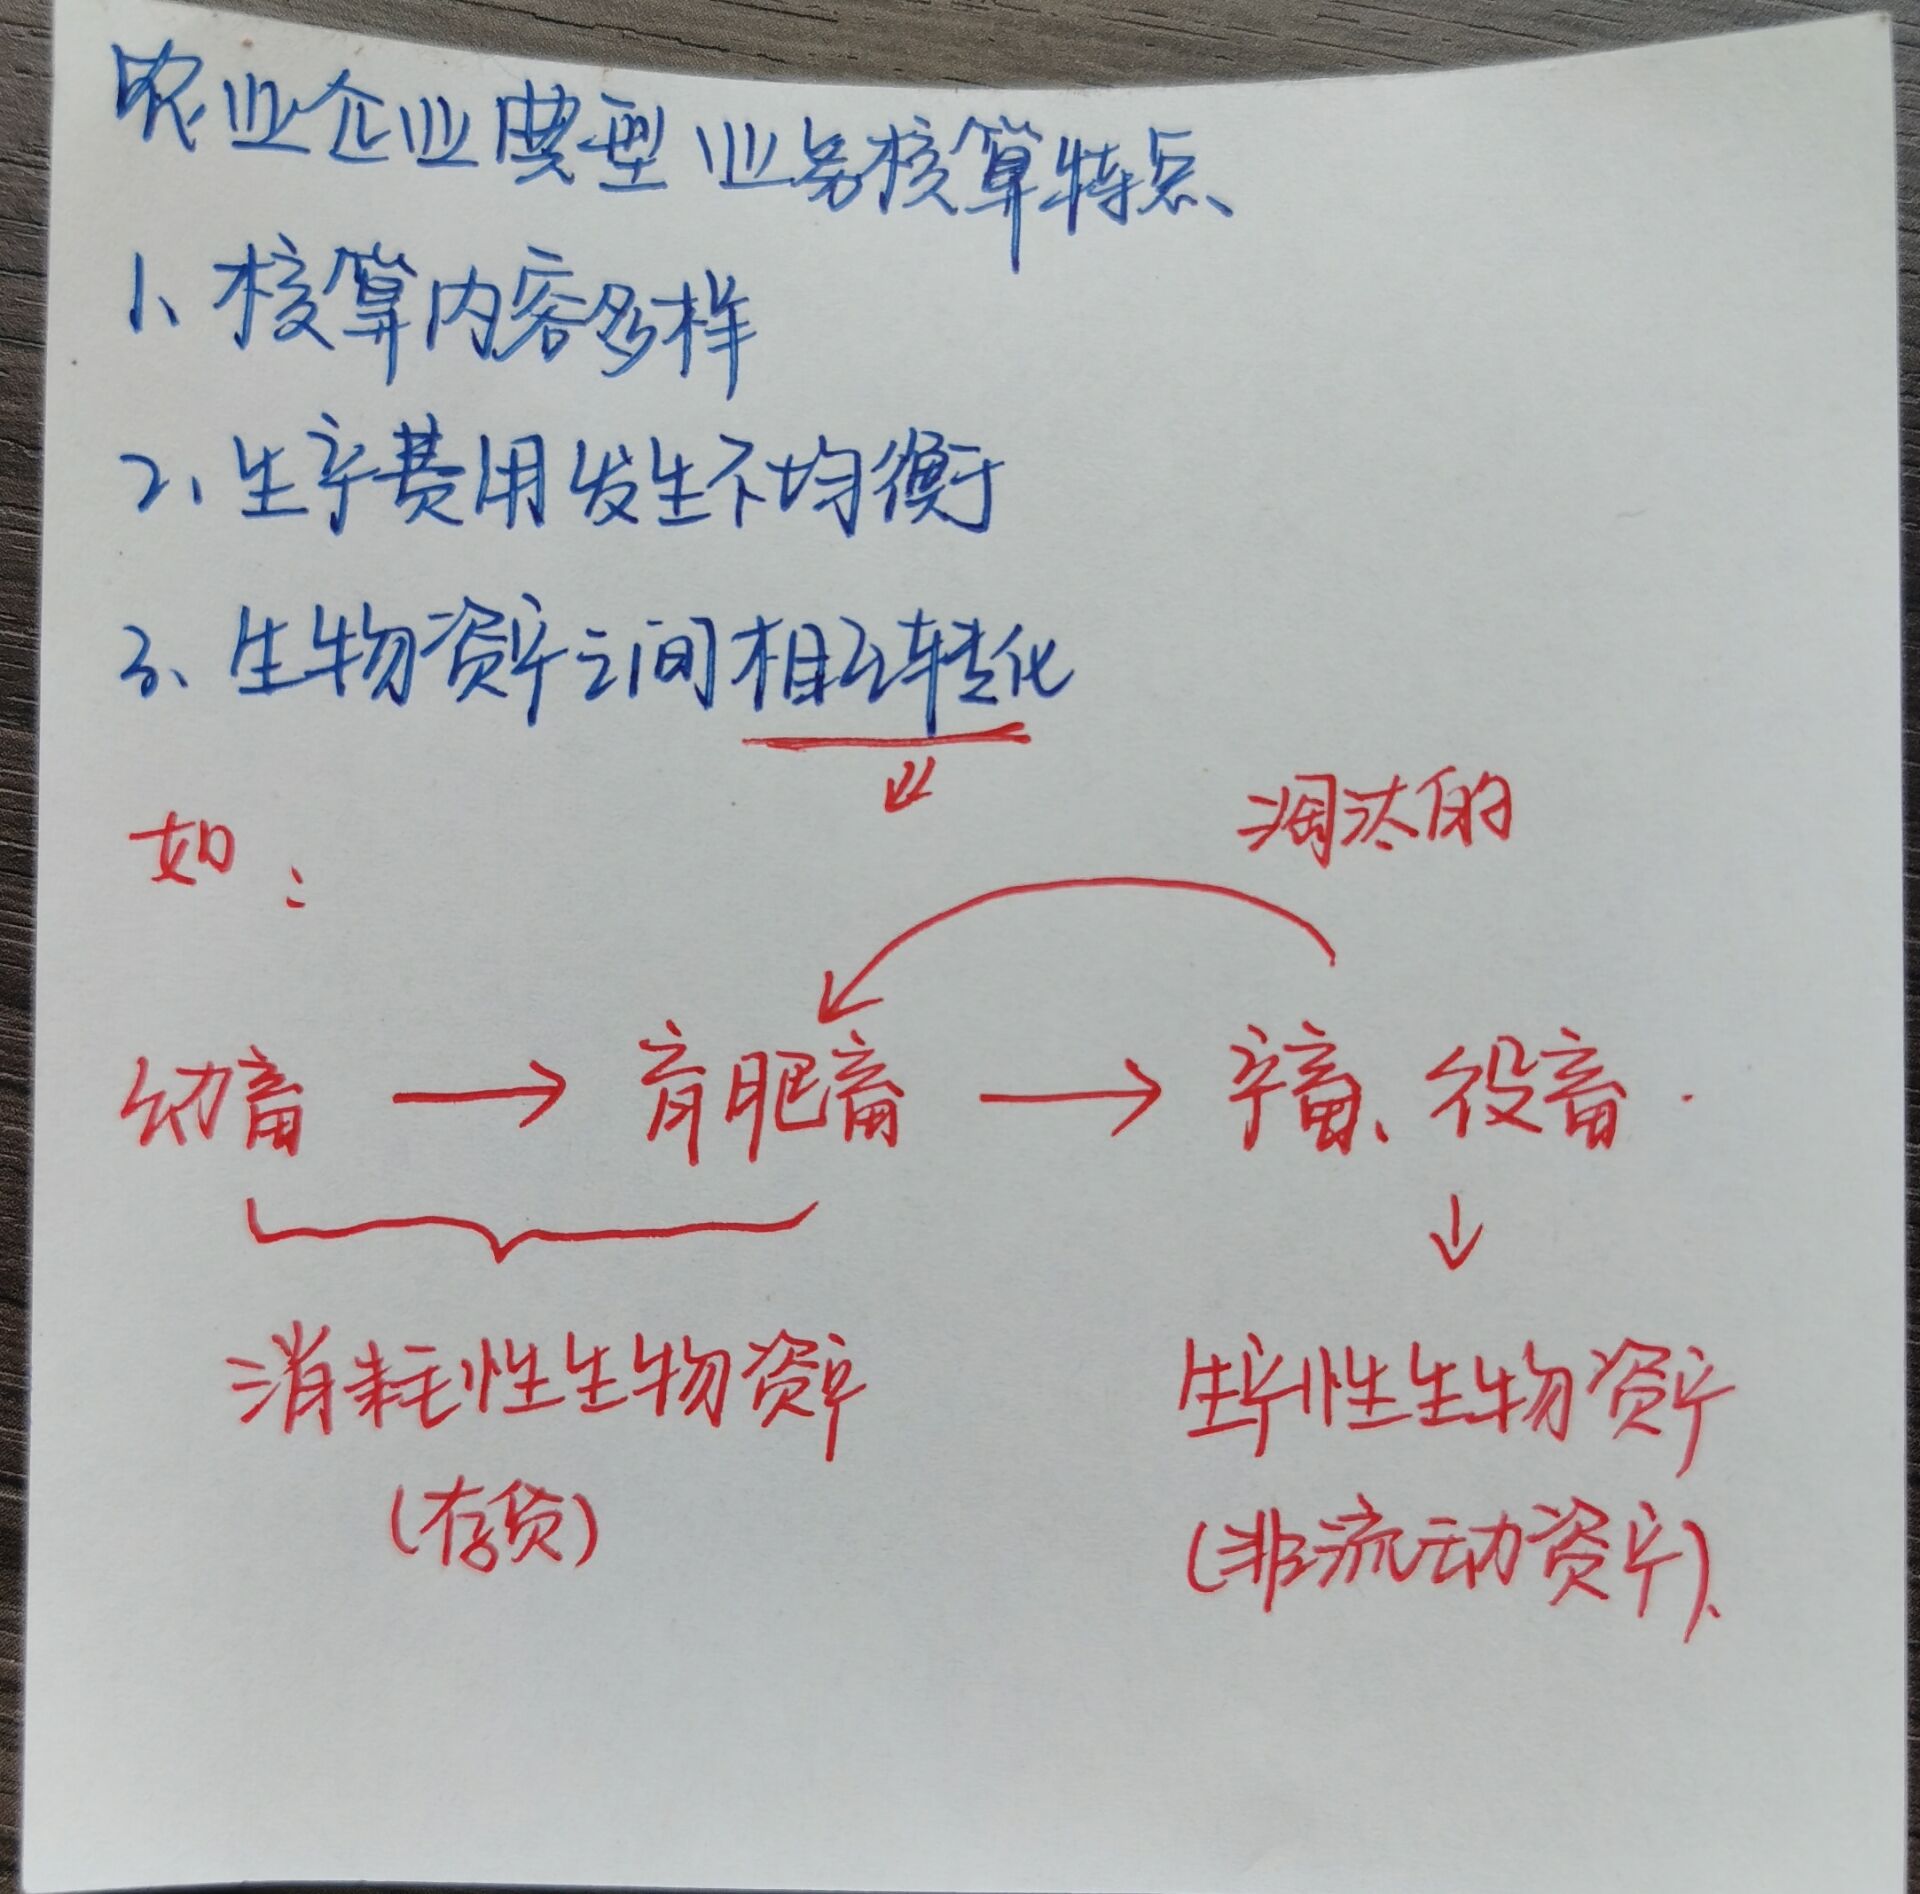 农业企业典型业务核算特点
1、核算内容多样
2、生产费用发生不均衡
3、生物资产之间相互转化
淘汰的
如：
幼畜 → 育肥畜 → 产畜、役畜
消耗性生物资产
生产性生物资产
(存货)
(非流动资产)